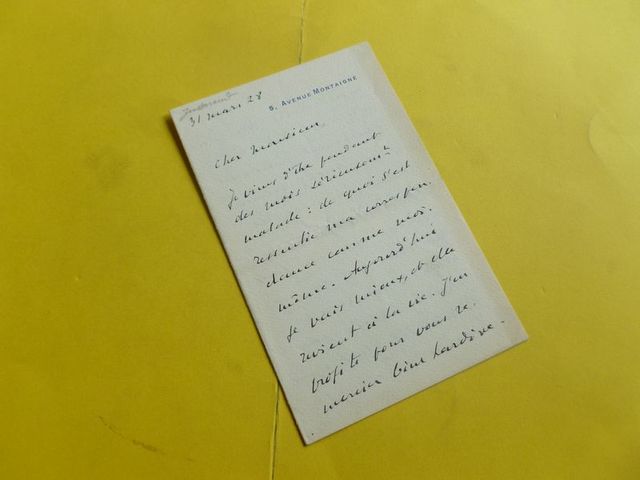 5, AVENUE MONTAIGNE
31 mars 28
Cher Monsieur,
Je viens d'être pendant
des mois sérieusemt
malade : de quoi s'est
ressentie ma correspon-
dance comme moi-
même. Aujourd'hui
je vais mieux, et elle
revient à la vie. J'en
profite pour vous re-
mercier bien tardive-